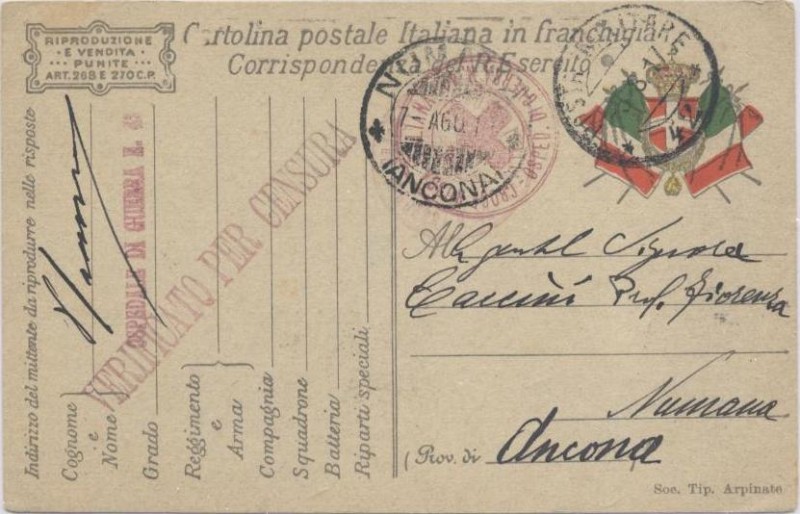 RIPRODUZIONE
E VENDITA
PUNITE
ART. 268 E 270 C.P.
Cartolina postale Italiana in franchigia
Corrispondenza del R. Esercito
Indirizzo del mittente da riprodurre nelle risposte
Cognome
e
Nome
Grado
Reggimento
e
Arma
Compagnia
Squadrone
Batteria
Riparti speciali
OSPEDALE DI GUERRA N.
VERIFICATO PER CENSURA
7 AGO
(ANCONA)
OSPED.
Alla gentil Signora
Prof. Fiorenza
Numana
(Prov. di Ancona
Soc. Tip. Arpinate